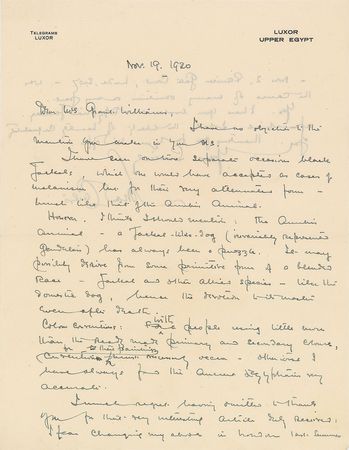 TELEGRAMS
LUXOR
LUXOR
UPPER EGYPT
Nov. 19. 1920
Dear Mrs Grant-Williams
I have no objection to the
mention you make in your MS.
I have seen on five separate occasions black
Jackals, which one would have accepted as cases of
melanism but for their very attenuated form -
much like that of the Anubis Animal.
However, I think I should mention: the Anubis
Animal - a Jackal-like-dog (invariably represented
) has always been a puzzle. It may
possibly derive from some primitive form of a blended
Race - Jackal and other allied species - like the
domestic dog, hence the devotion to its master
even after death.
Colour conventions: with a people using little more
than the ready made primary and secondary colours,
in their paintings
necessarily occur - otherwise I
have always found the Ancient Egyptians very
accurate.
I much regret having omitted to thank
you for that very interesting article duly received.
I fear changing my abode in London last summer